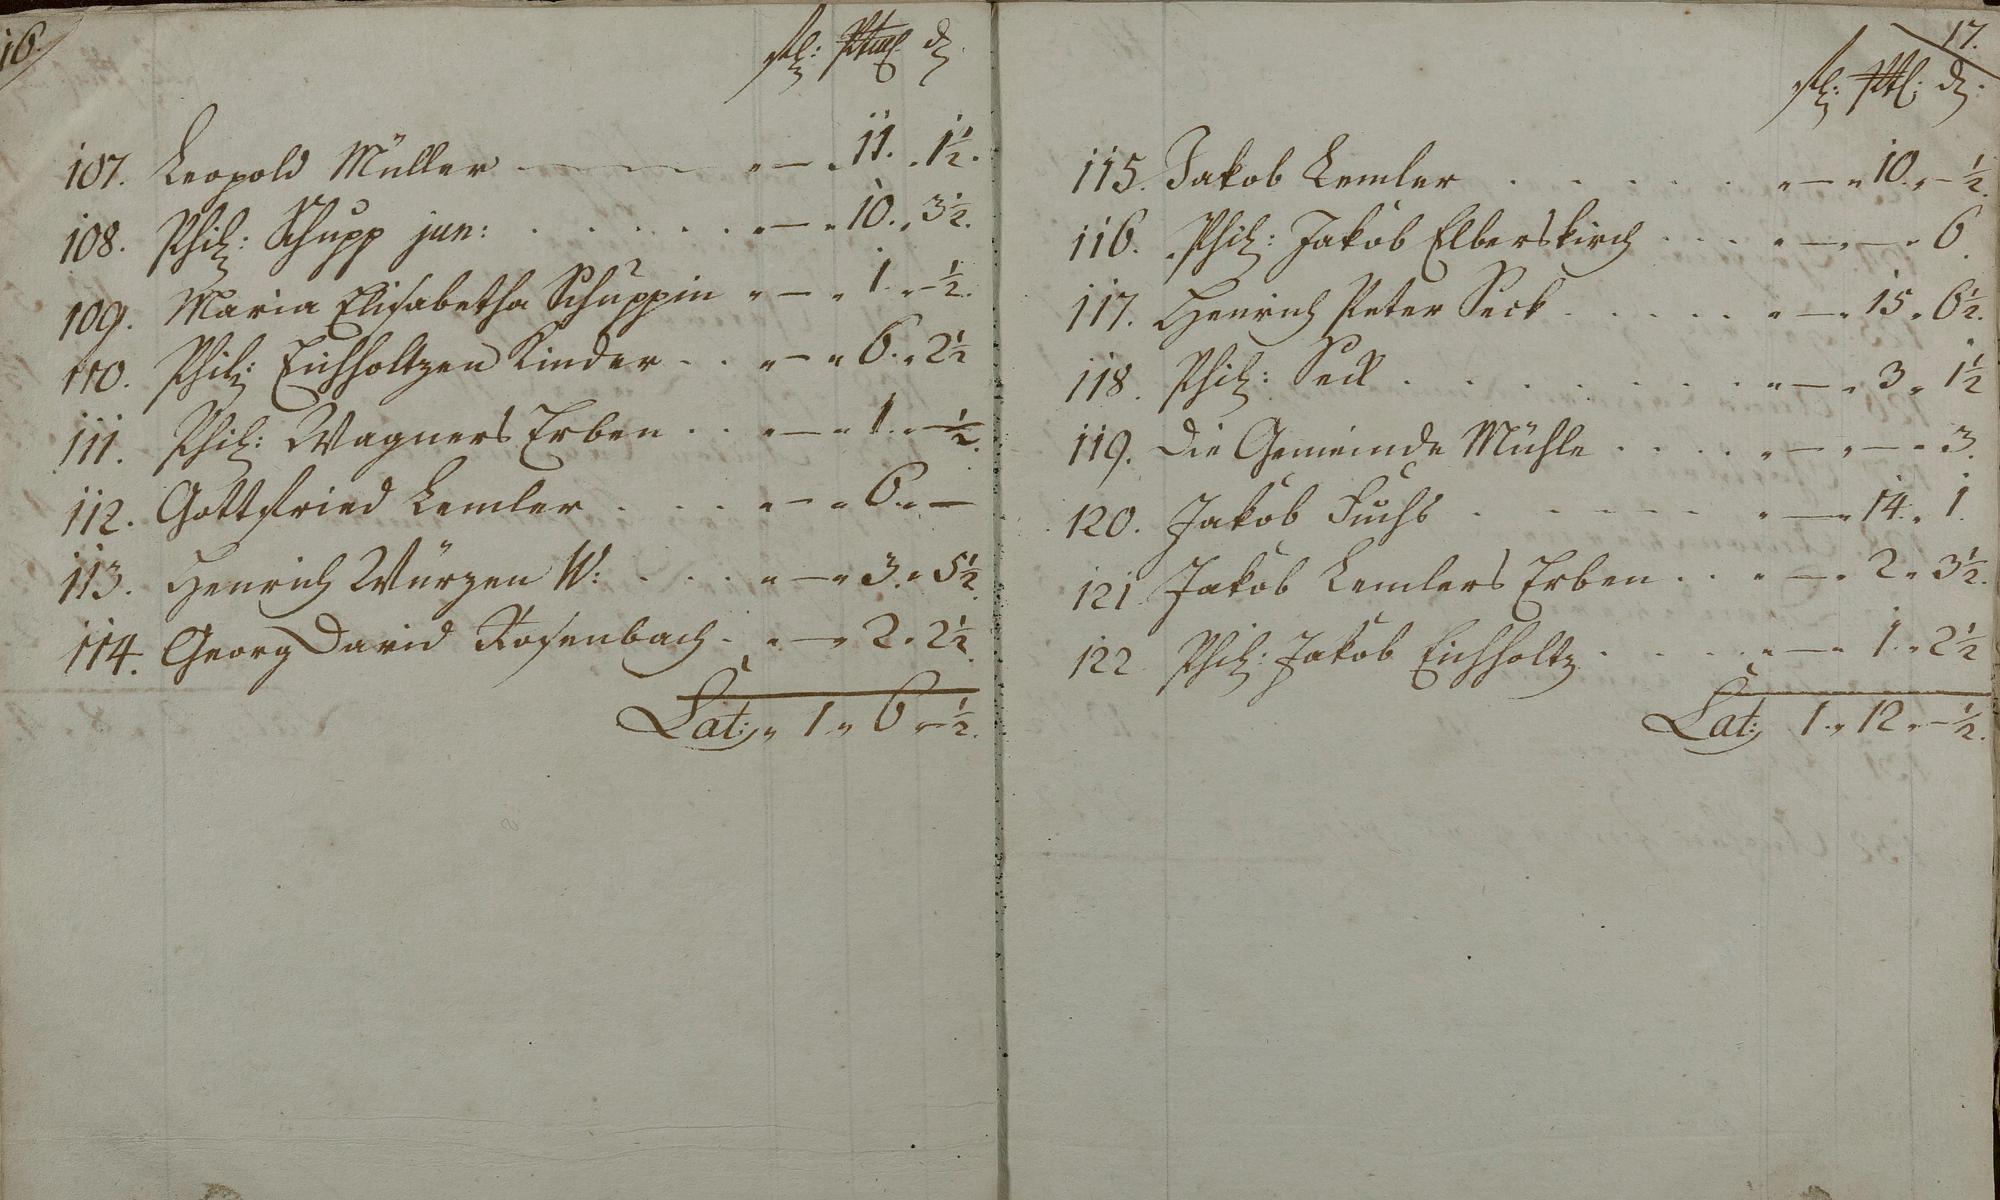 16.
fl: Sttl d
107. Leopold Müller — „ — „ 11. „ 1½.
108. Phil: Schupp jun: . . . . . . „ — „ 10. „ 3½.
109. Maria Elisabetha Schuppin „ — „ 1. „ — ½.
110. Phil: Eichholtzen Kinder . . „ — „ 6. „ 2½
111. Phil: Wagners Erben . . „ — „ 1. „ — ½.
112. Gottfried Lemler . . . „ — „ 6. „ —
113. Henrich Würzen W: . . . . „ — „ 3. „ 5½.
114. Georg David Rosenbach . „ — „ 2. „ 2½.
Lat: „ 1 „ 6 „ — ½.
17.
fl: d
115. Jakob Lemler . . . . . . „ — „ 10. „ — ½.
116. Phil: Jakob Elberskirch . . . . „ — „ — „ 6.
117. Henrich Peter Seck . . . . . „ — „ 15 „ 6½.
118. Phil: Seck . . . . . . . . „ — „ 3 „ 1½
119. Die Gemeinde Mühle . . . . „ — „ — „ 3.
120. Jakob Fuchs . . . . . . „ — „ 14. „ 1.
121 Jakob Lemlers Erben . . „ — „ 2 „ 3½.
122 Phil: Jakob Eichholtz . . . . . „ — „ 1. „ 2½
Lat: 1. „ 12 „ — ½.